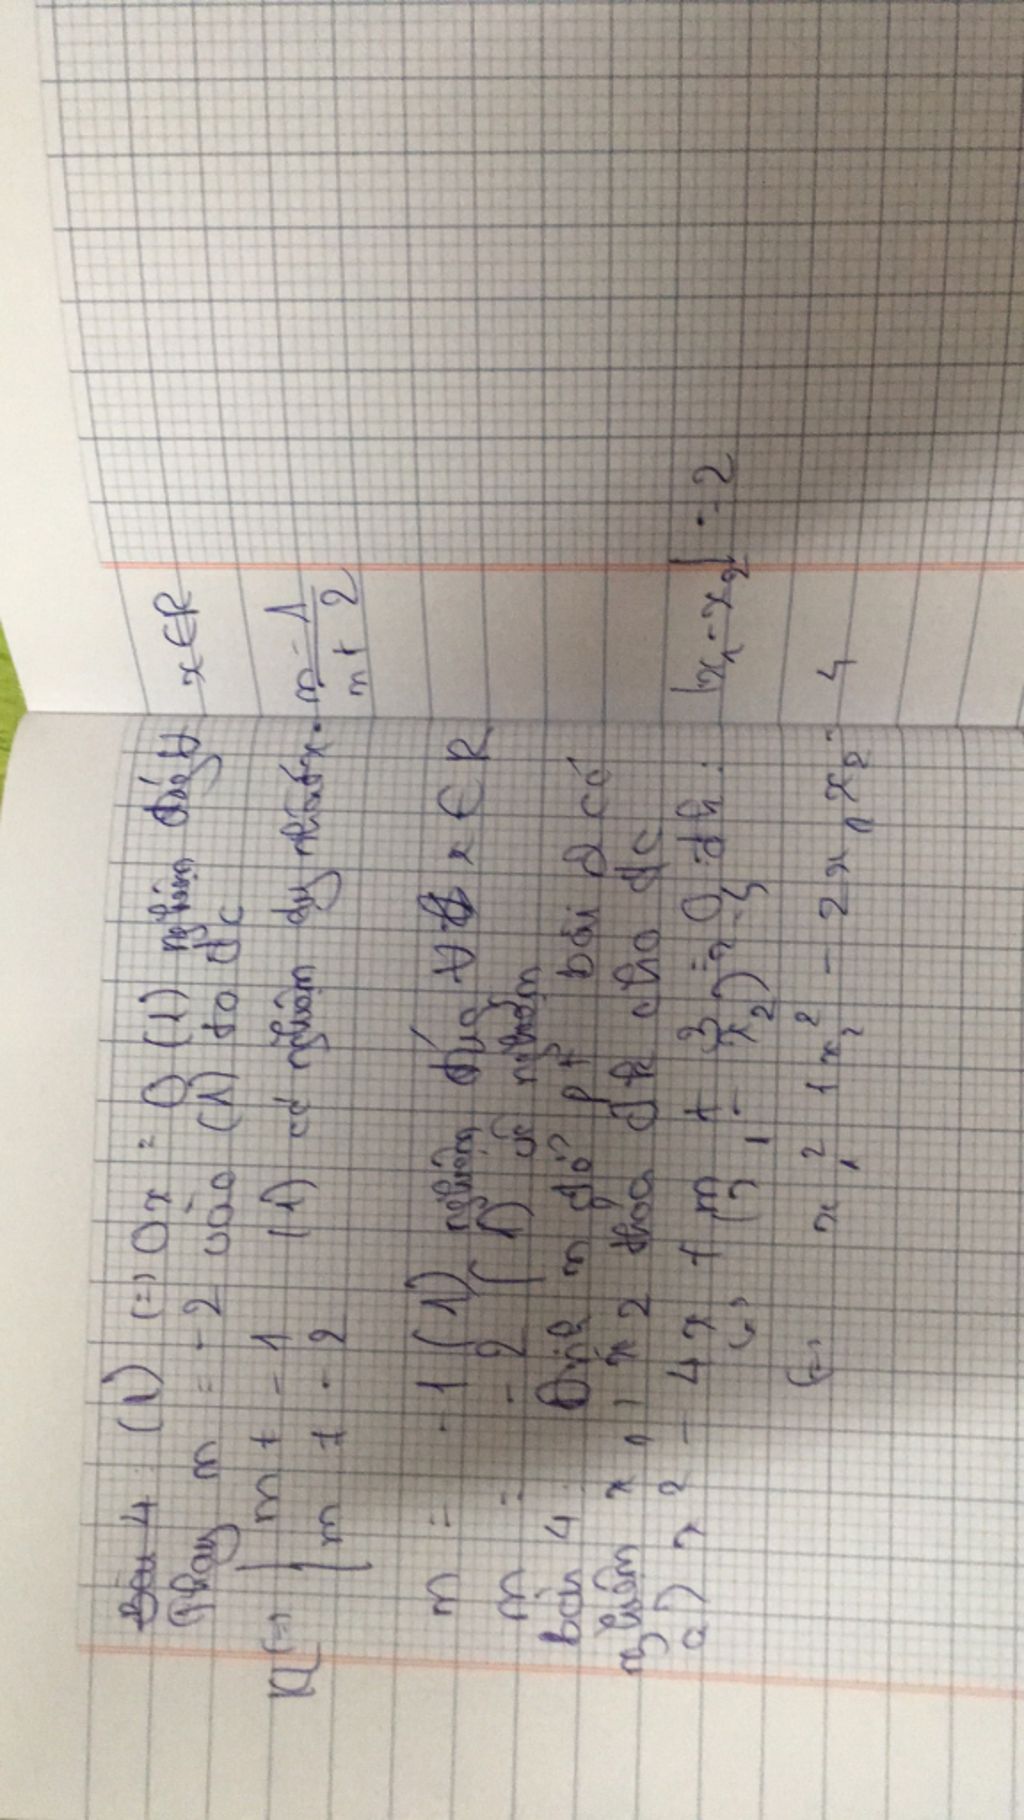 Bài 4: (1) (=) 0x = 0 (1) nghiệm đúng ∀ x ∈ R
Thay m = -2 vào (1) ta đc
KL (=) { m ≠ -1 (1) có nghiệm duy nhất x = m-1/m+2
{ m ≠ -2
m = -1 (1) nghiệm đúng ∀ x ∈ R
m = -2 (1) vô nghiệm
Bài 4: Định m để pt bài 2 có
nghiệm x1, x2 thỏa đk cho đc
a) x2 - 4x + m + 3 = 0 đk: |x1 - x2| = 2
(=) (x1 - x2)2 = 4
(=) x1² + x2² - 2x1x2 = 4